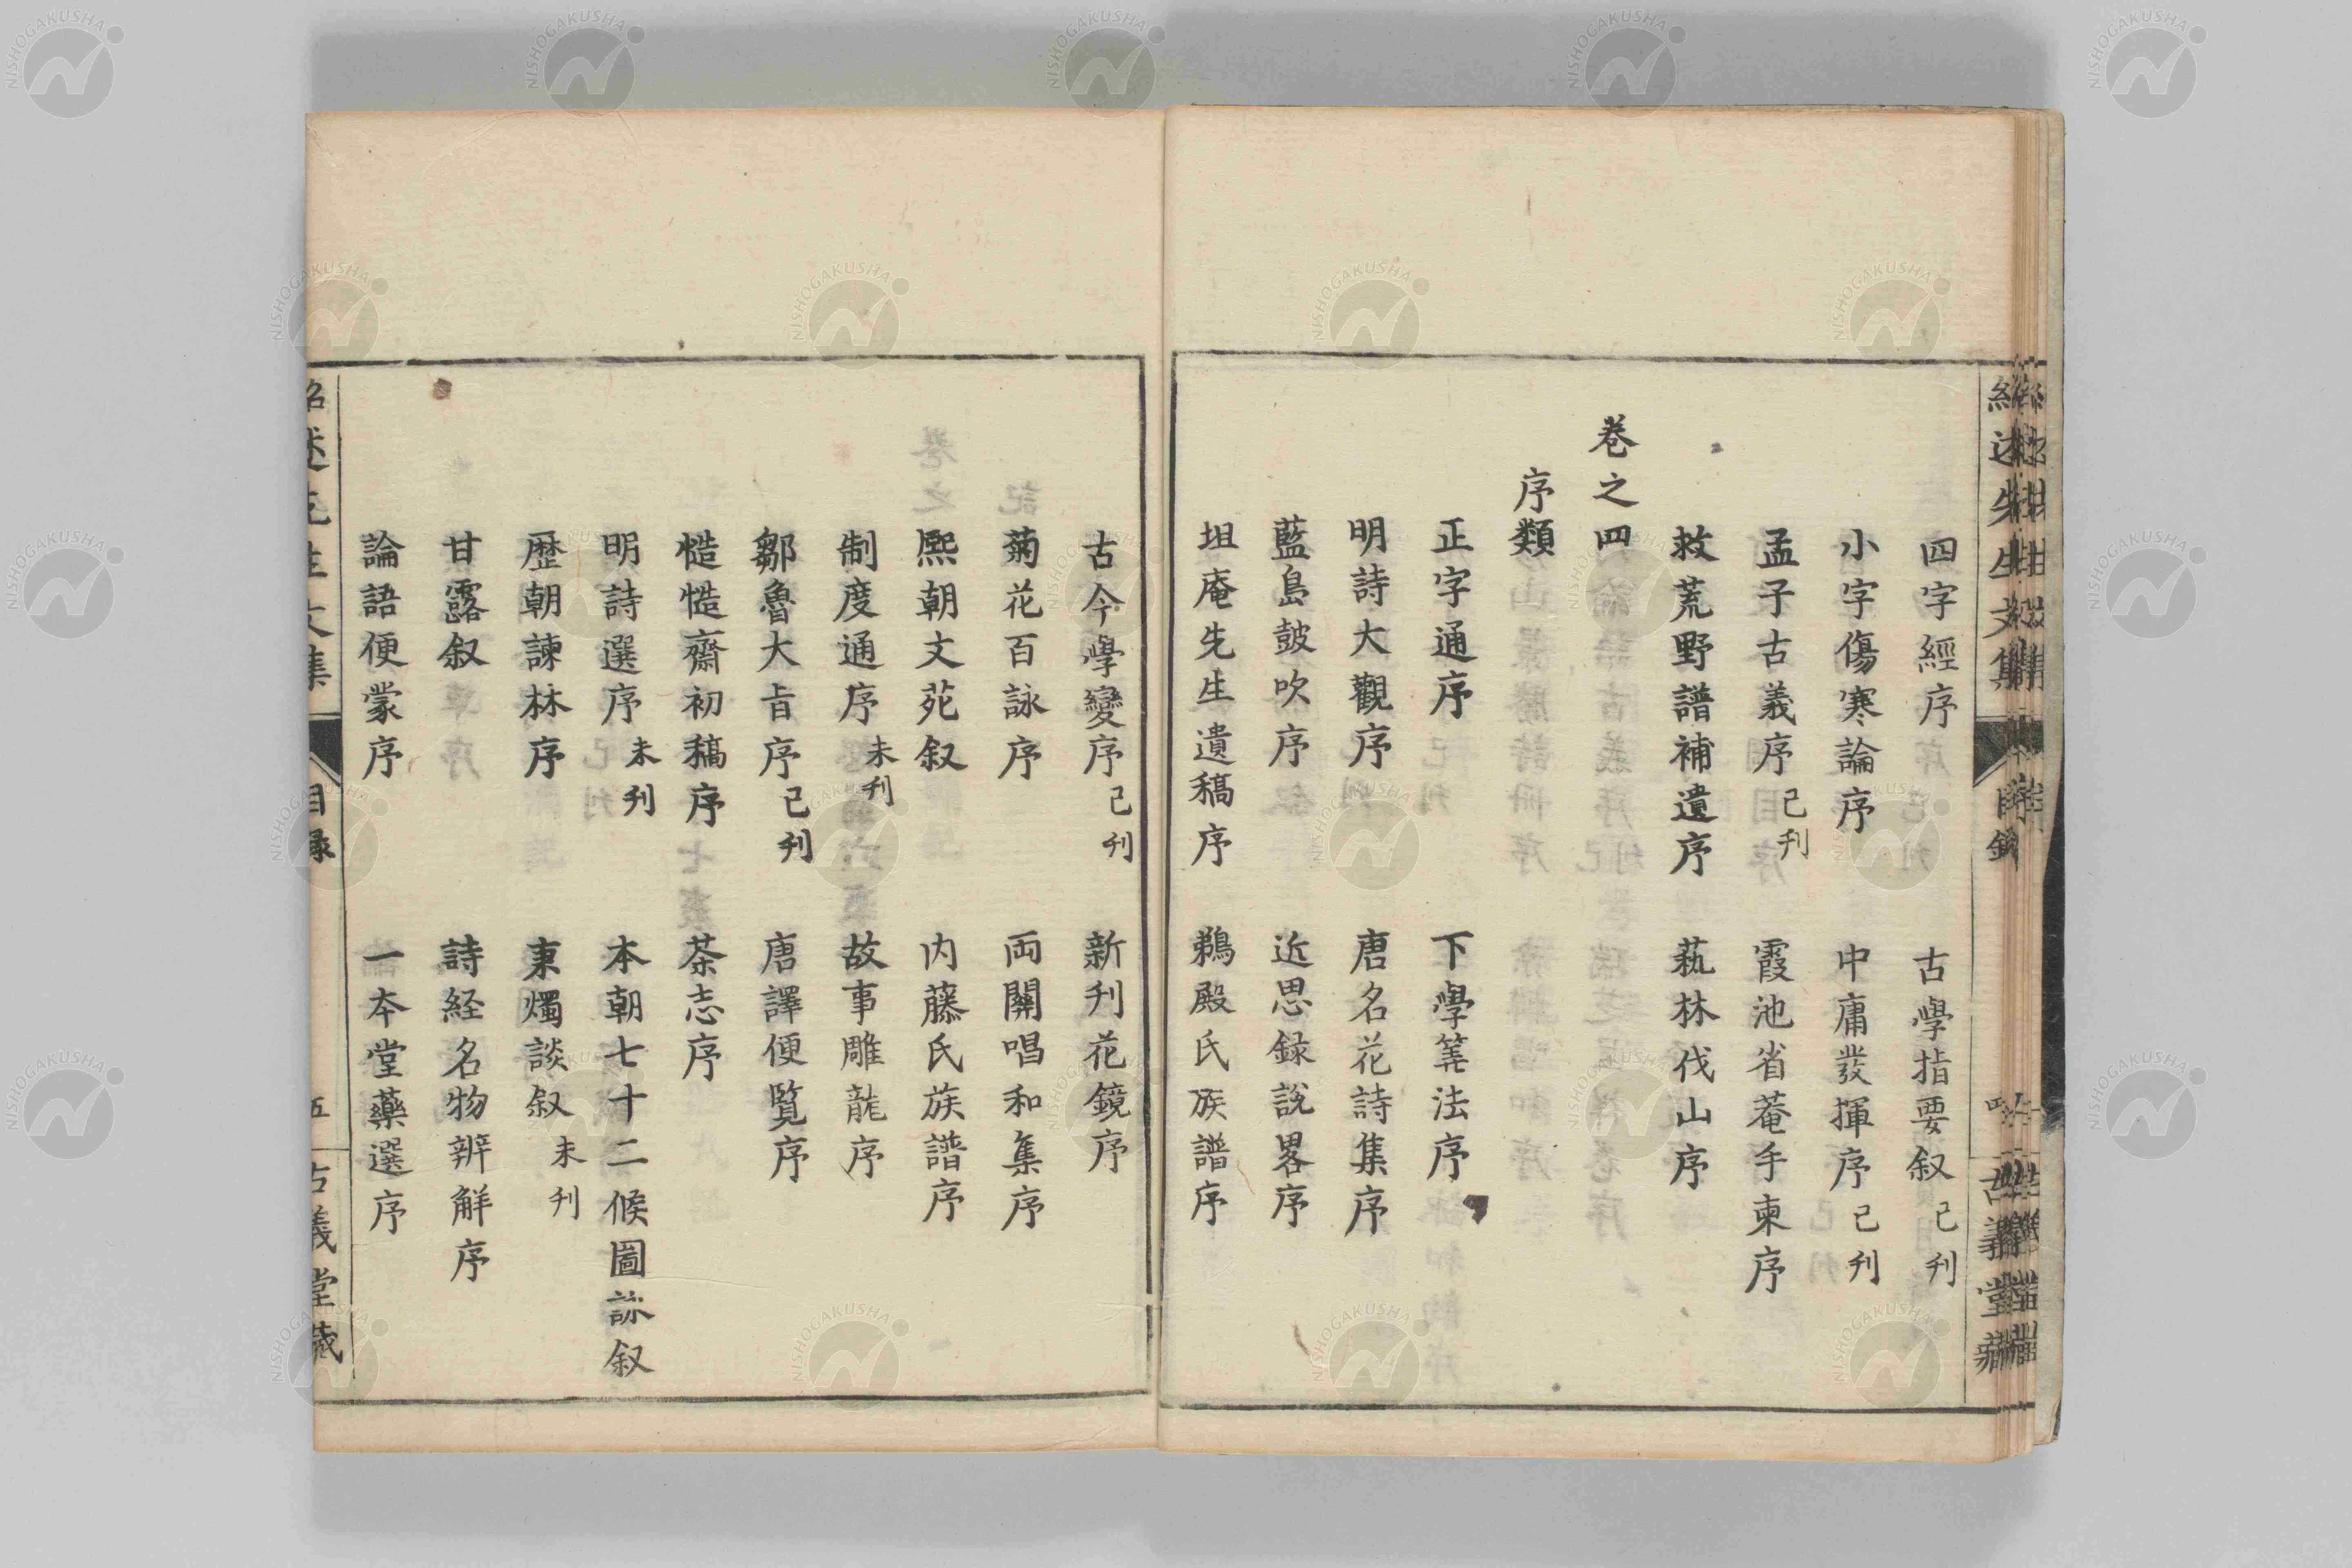 四字經序　古學指要叙已刋
小字傷寒論序　中庸發揮序已刋
孟子古義序已刋　霞池省菴手柬序
救荒野譜補遺序　蓺林伐山序
巻之四
序類
正字通序　下學筭法序
明詩大觀序　唐名花詩集序
藍島鼓吹序　近思録説畧序
坦庵先生遺稿序　鵜殿氏族譜序
古今學變序已刋　新刋花鏡序
菊花百詠序　両關唱和集序
熈朝文苑叙　内藤氏族譜序
制度通序未刋　故事雕龍序
鄒魯大旨序已刋　唐譯便覧序
慥慥齋初稿序　茶志序
明詩選序未刋　本朝七十二候圖詠叙
歴朝諫林序　秉燭談叙未刋
甘露叙　詩経名物辨解序
論語便蒙序　一本堂藥選序
紹述先生文集　目録　五　古義堂藏
NISHOGAKUSHA